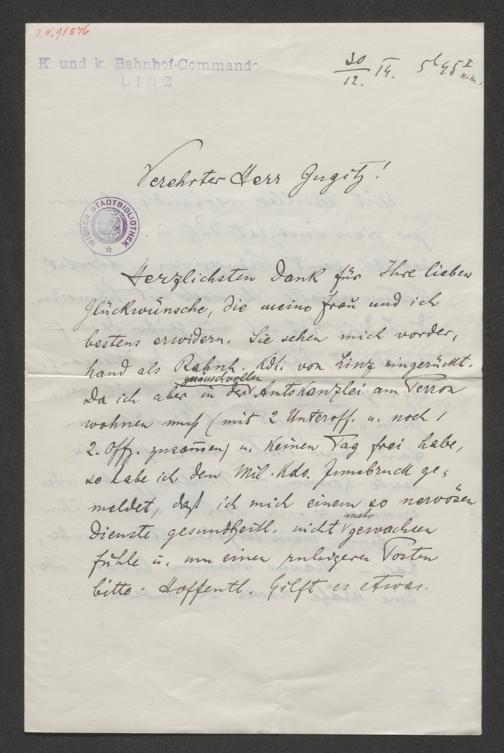 J.N. 91876
K. und k. Bahnhof-Command
LINZ
30/12. 14. 5h 45
Verehrter Herr Gugitz!
WIENER STADTBIBLIOTHEK
Herzlichsten Dank für Ihre lieben
Glückwünsche, die meine Frau und ich
bestens erwidern. Sie sehen mich vorder,
hand als Bahnh. Kdt. von Linz eingerückt.
geräuschvollen
Da ich aber in der Amtskanzlei am Perron
wohnen muß (mit 2 Unteroff. u. noch 1
2. Offz. zusammen) u. keinen Tag frei habe,
so habe ich dem Mil. Kdo. Innsbruck ge,
meldet, daß ich mich einem so nervösen
mehr
Dienste gesundheitl. nicht gewachsen
fühle u. um einen ruhigeren Posten
bitte. Hoffentl. hilft es etwas.